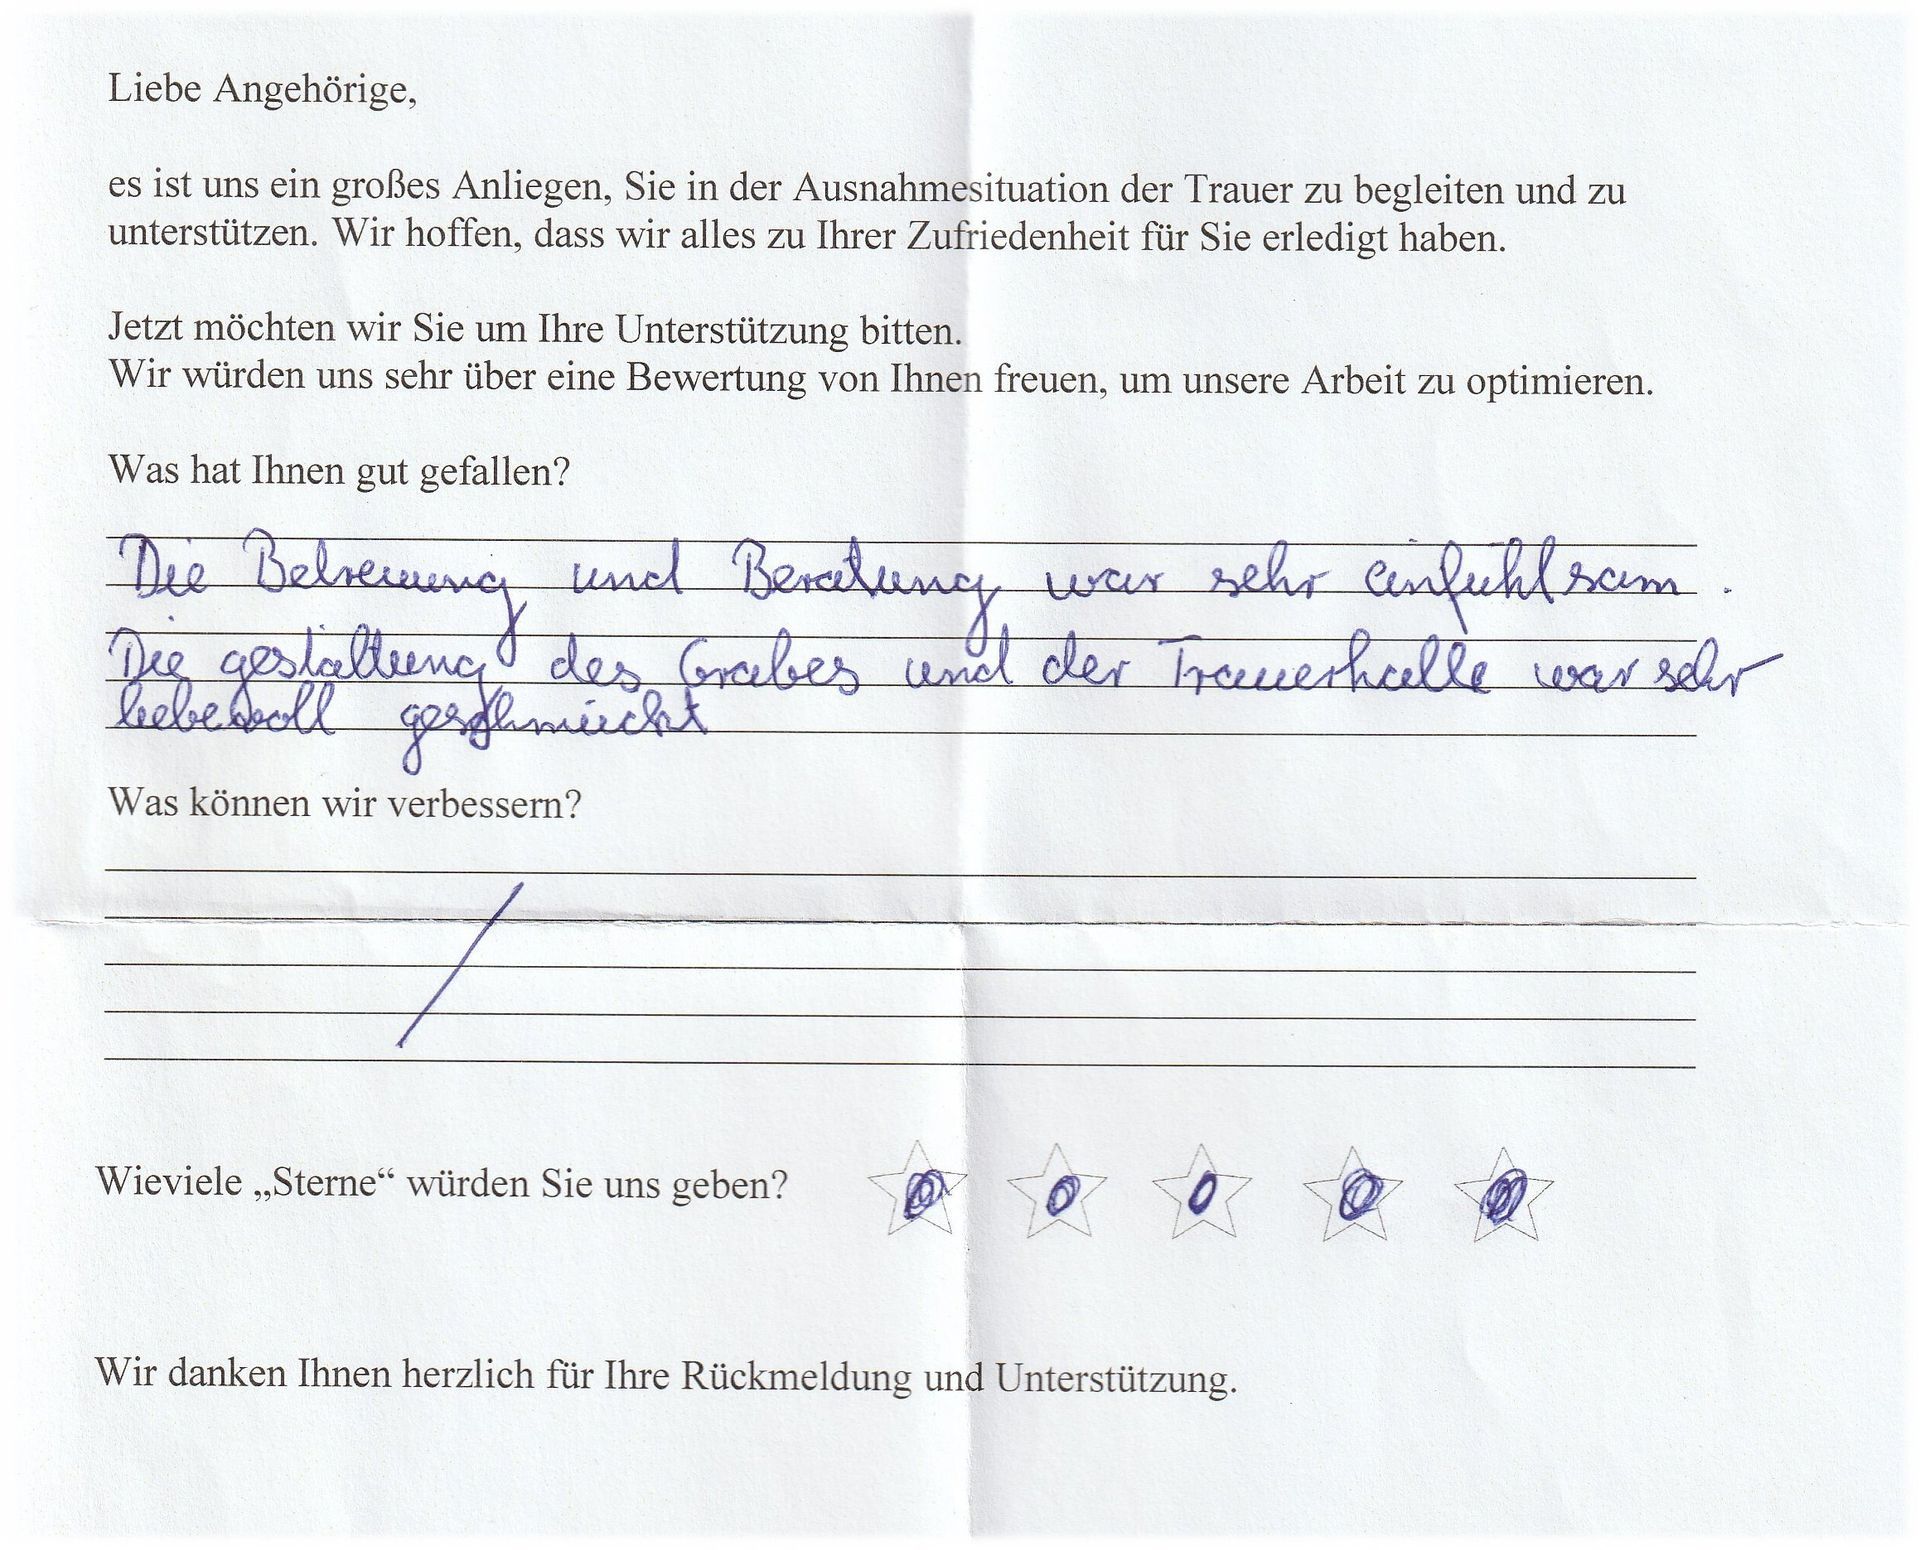 Liebe Angehörige,
es ist uns ein großes Anliegen, Sie in der Ausnahmesituation der Trauer zu begleiten und zu
unterstützen. Wir hoffen, dass wir alles zu Ihrer Zufriedenheit für Sie erledigt haben.
Jetzt möchten wir Sie um Ihre Unterstützung bitten.
Wir würden uns sehr über eine Bewertung von Ihnen freuen, um unsere Arbeit zu optimieren.
Was hat Ihnen gut gefallen?
Die Betreuung und Beratung war sehr einfühlsam.
Die gestaltung des Grabes und der Trauerhalle war sehr
liebevoll geschmückt
Was können wir verbessern?
Wieviele „Sterne“ würden Sie uns geben?
Wir danken Ihnen herzlich für Ihre Rückmeldung und Unterstützung.